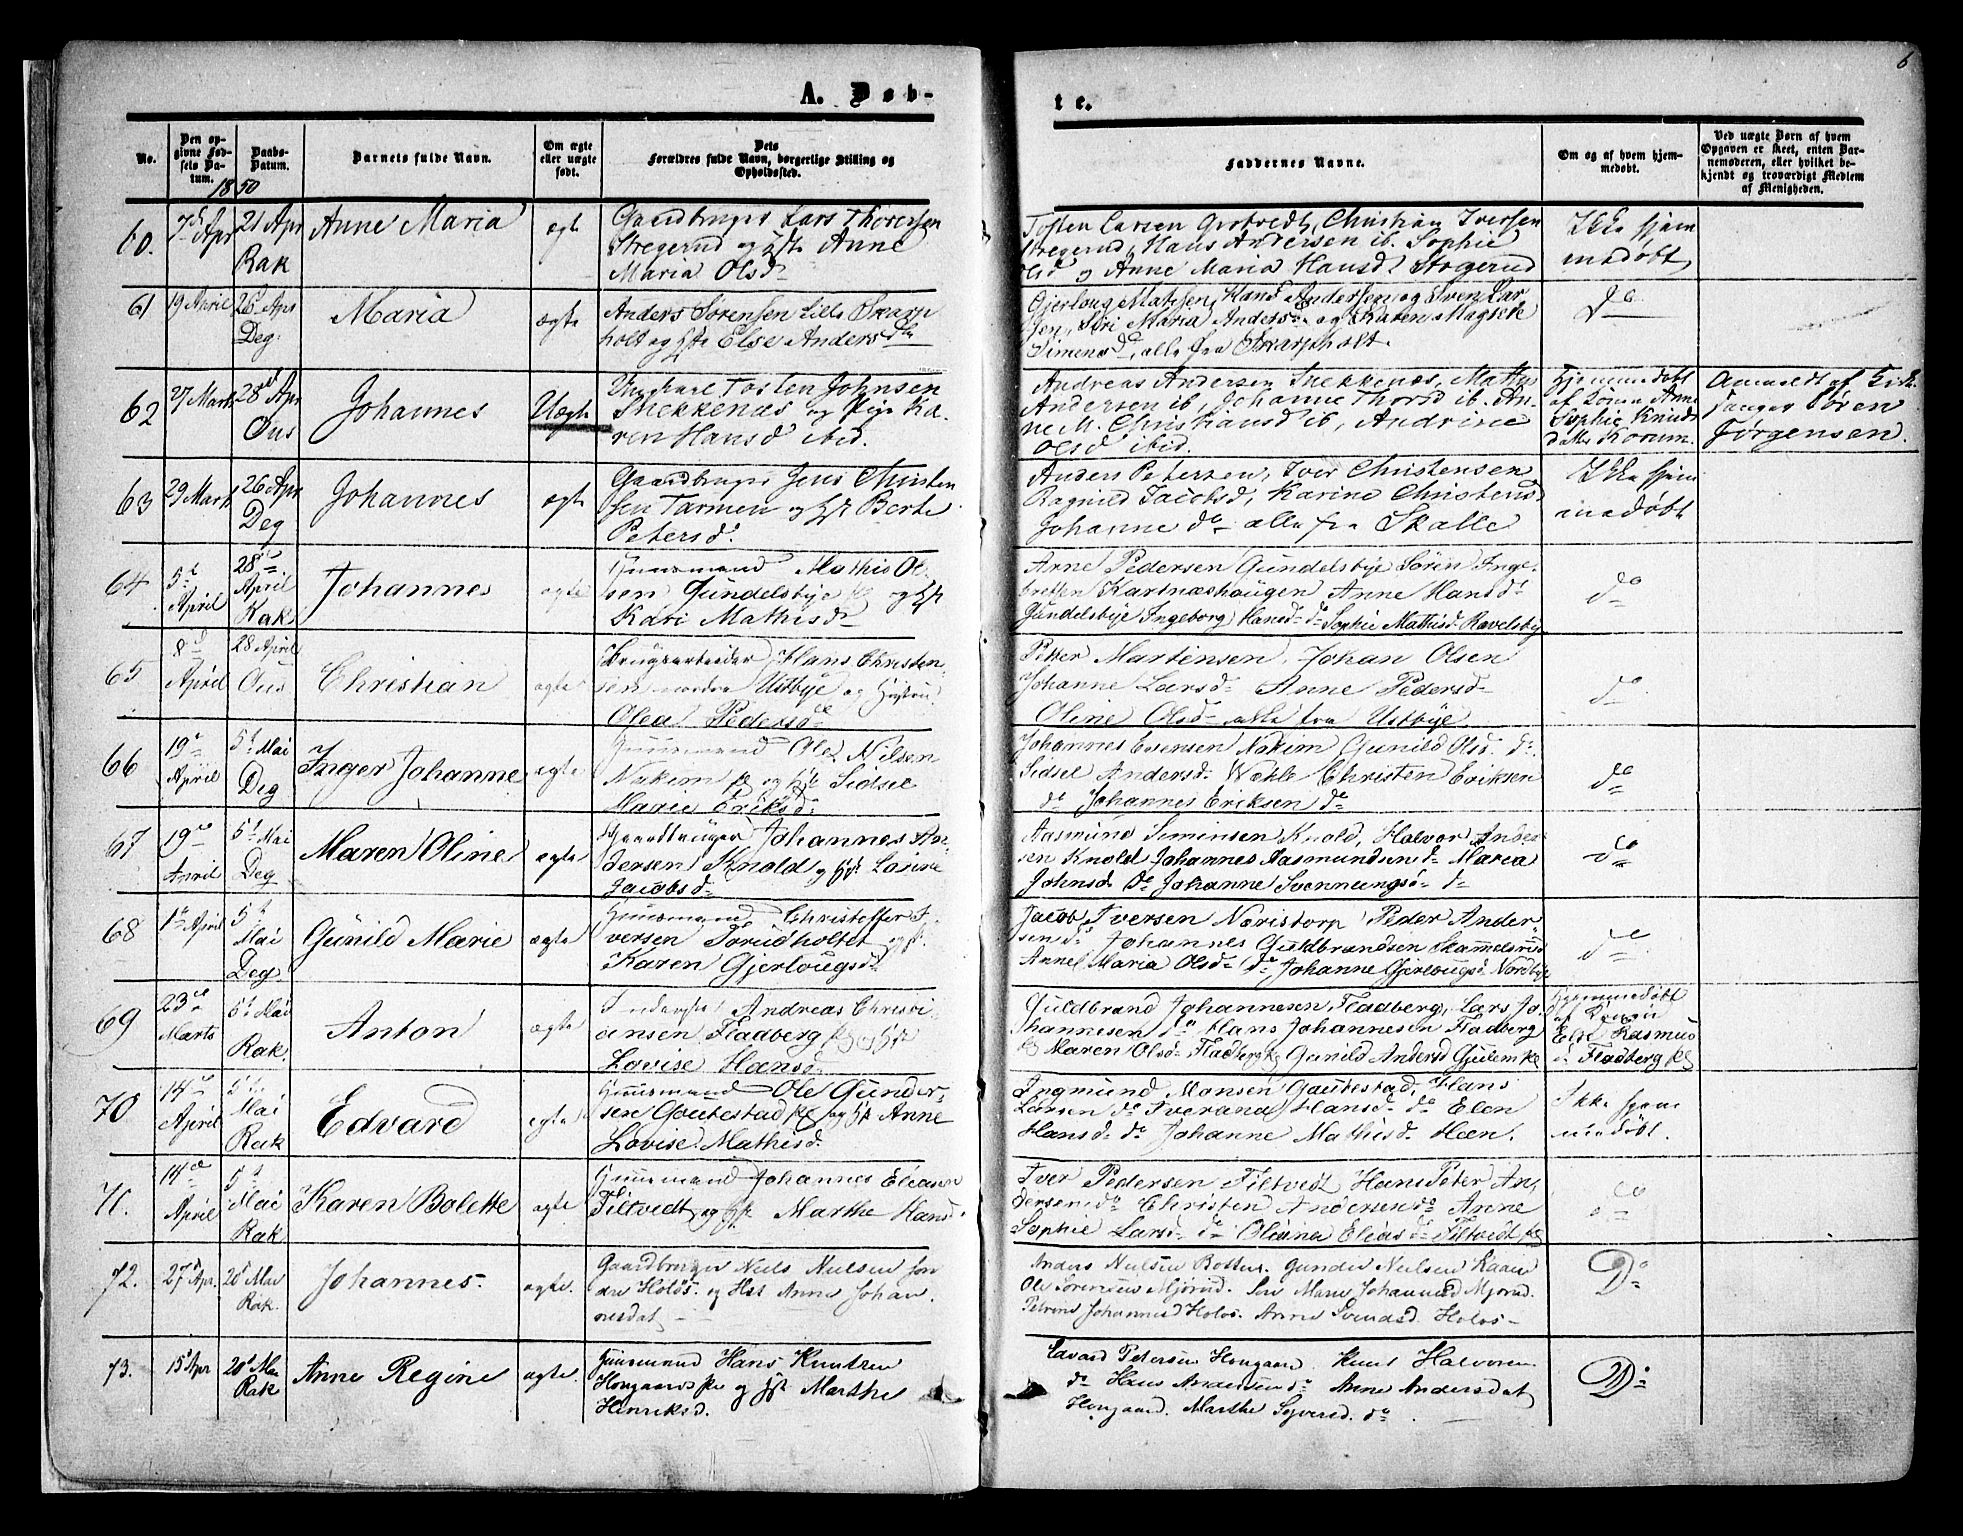 6
A. Døb-
te.
No.
Den op-
givne Fød-
sels Da-
tum.
Daabs-
Datum.
1850
Barnets fulde Navn.
Om ægte
eller uægte
født.
Dets
Forældres fulde Navn, borgerlige Stilling og
Opholdssted.
Faddernes Navne.
Om og af hvem hjem-
medøbt.
Ved uægte Børn af hvem
Opgaven er skeet, enten Bar-
nemoderen, eller hvilket be-
kjendt og troværdigt Medlem
af Menigheden.
60.
7d Apr
21 Apr
Rak
Anne Maria
ægte
Gaardbruger Lars Thoresen
Stregerud og Hst Anne
Maria Olsd
Tosten Larsen Grotvedt, Christian Iversen
Stregerud, Hans Andersen ib. Sophie
Olsd og Anne Maria Hansd Stregerud
Ikke hjem
medøbt
61
19 April
26 Apr
Deg.
Maria
ægte
Anders Sørensen Lille Skarp
holt og Hst Else Andersd
Gjerloug Mathisen, Hans Andersen og Sven Lar
sen, Siri Maria Andersd og Karen
Simensd, alle fra Skarpholt.
do
62
27 Marts
28 Apr
Ous
Johannes
Uægte
Ungkarl Tosten Johnsen
Snekkenæs og Pige Ka-
ren Hansd ibid.
Andreas Andersen Snekkenæs, Mathis
Andersen ib, Johanne Thorsd ib. An-
ne M. Christiansd ib, Andrine
Olsd ibid.
Hjemmedøbt
af Anne
Sophie Knuds
datter Korum.
Anmeldt af Kirke
sanger Søren
Jørgensen.
63
29 Marts
26 Apr
Deg
Johannes
ægte
Gaardbruger Jens Christen
sen Tarmen og Hst Berte
Petersd.
Anders Petersen, Iver Christensen
Ragnild Jacobsd, Karine Christensd
Johanne do alle fra Skalle
Ikke hjem
medøbt
64
5d
April
28
April
Rak
Johannes
ægte
Huusmand Mathis Ol-
sen Gundelsbye og Hst
Kari Mathisd
Arne Pedersen Gundelsbye Søren Inge-
bretsen Kartnæshaugen Anne Hansd
Gundelsbye Ingeborg Hansd do Sophie Mathisd Ravelsbye
do
65
8d
April
28 April
Ous
Christian
ægte
Brugsarbeider Hans Christen-
sen nordra Ustbye og Hustru
Olea Pedersd
Petter Martinsen, Johan Olsen
Johanne Larsd Anne Pedersd
Oline Olsd alle fra Ustbye
do
66
19
April
5t Mai
Deg
Inger Johanne
ægte
Huusmand Ole Nilsen
Nakim og Hst Sidsel
Marie Eriksd
Johannes Evensen Nakim Gunild Olsd do
Sidsel Andersd Christen Eriksen
do Johannes Eriksen do
do
67
19
April
5t Mai
Deg
Maren Oline
ægte
Gaardbruger Johannes An-
dersen Knold og Hst Lovise
Jacobsd
Aasmund Simensen Knold, Halvor Ander-
sen Knold Johannes Aasmundsen do Maria
Johnsd do Johanne Svenningsd do
do
68
1t April
5t
Mai
Deg
Gunild Marie
ægte
Huusmand Christoffer I-
versen Torudholtet og Hst.
Karen Gjerlougsd
Jacob Iversen Næristorp Peder Ander-
sen do Johannes Guldbrandsen Skammelsrud
Anne Maria Olsd do Johanne Gjerlougsd Nordbye
do
69
23
Marts
5t Mai
Rak.
Anton
ægte
Andreas Christi-
ansen Fladberg og Hst
Lovise Hansd
Guldbrand Johannesen Fladberg, Lars Jo-
hannesen do Hans Johannesen Fladberg
Maren Olsd Fladberg Gunild Andersd Gulem
Hjemmedøbt
af
Else Rasmus
d Fladberg
70
14
April
5t
Mai
Rak
Edvard
ægte
Huusmand Ole Gunder-
sen Gaubestad og Hst Anne
Lovise Mathisd
Ingmund Monsen Gaubestad, Hans
Larsen do Iverana Hansd do Elen
Hansd do Johanne Mathisd Heen.
Ikke hjem
medøbt.
71.
14
April
5t
Mai
Rak
Karen Bolette
ægte
Huusmand Johannes Eliasen
Filtvedt og Hst Marthe Hansd
Iver Pedersen Filtvedt Hans Peter An-
dersen do Christen Andersen do Anne
Sophie Larsd do Oleana Eliasd Filtvedt
do
72.
27 Apr.
20 Mai
Rak.
Johannes.
ægte.
Gaardbruger Niels Nielsen søn
dre Holøs. og Hst Anne Johan
nesdat
Anders Nielsen Gunder Nielsen Kaare
Ole Sørensen Mjørud. Johannesd Mjørud.
Petrine Johannesd Holøs. Anne Svendsd Holøs
Do
73.
15 Apr
20 Mai
Rak
Anne Regine
ægte.
Huusmand Hans Knutzen
Hougaard og Hst Marthe
Henriksd.
Edvard Petersen Hougaard. Knut Halvorsen
do Hans Andersen do Anne Andersdat
Hougaard. Marthe Syversd. do
Do